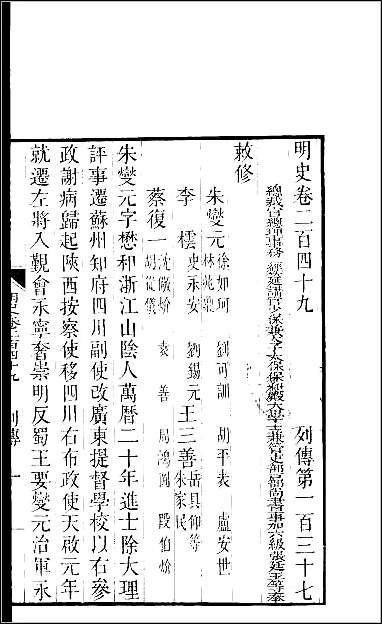 明史卷二百四十九　列傳第一百三十七
總裁官總理事務經筵講官少保兼太子太保保和殿大學士兼管吏部戶部尚書事加六級張廷玉等奉
敕修
朱燮元徐如珂　劉可訓　胡平表　盧安世
林兆鼎
李橒史永安　劉錫元　王三善岳具仰等
朱家民
蔡復一沈儆炌　袁善　周鴻圖　段伯炌
胡從儀
朱燮元字懋和浙江山陰人萬曆二十年進士除大理
評事遷蘇州知府四川副使改廣東提督學校以右參
政謝病歸起陝西按察使移四川右布政使天啟元年
就遷左將入覲會永寧奢崇明反蜀王要燮元治軍永
明史卷二百四十九　列傳　一